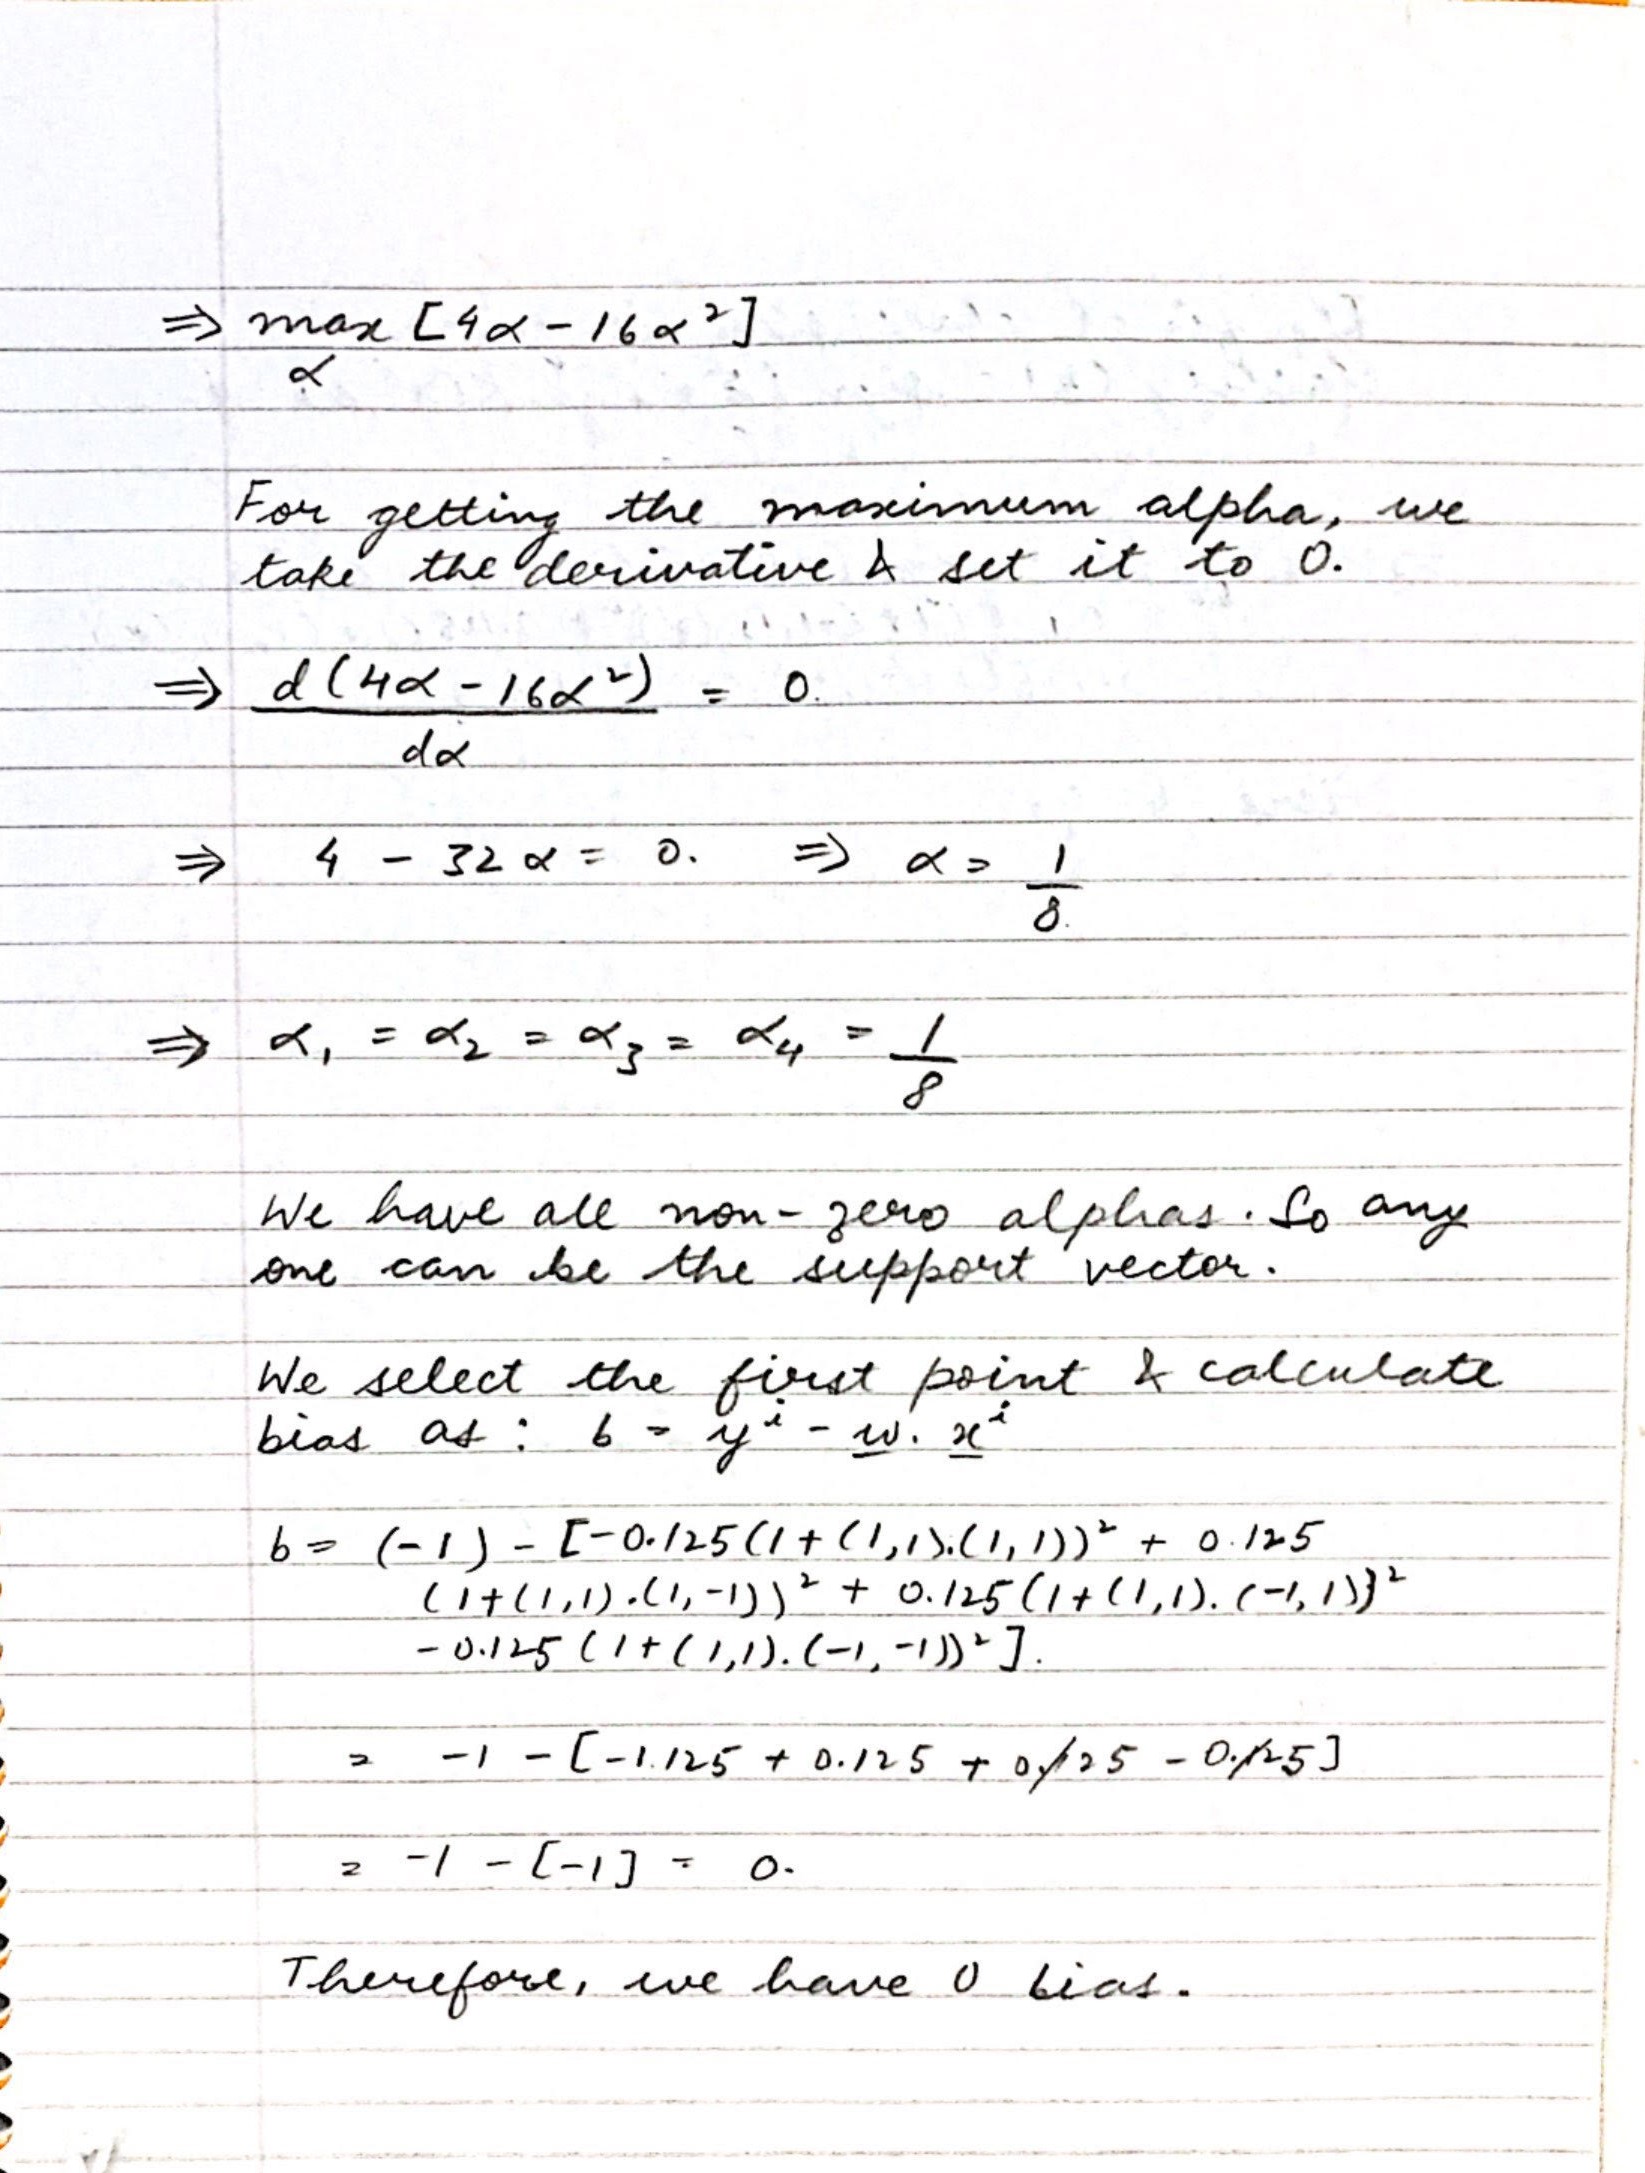 ⇒ max [4α - 16α²]
α
For getting the maximum alpha, we
take the derivative & set it to 0.
⇒ d(4α - 16α²) = 0.
dα
⇒ 4 - 32α = 0. ⇒ α = 1
8.
⇒ α₁ = α₂ = α₃ = α₄ = 1
8
We have all non-zero alphas. So any
one can be the support vector.
We select the first point & calculate
bias as: b = yⁱ - w. xⁱ
b = (-1) - [-0.125(1+(1,1).(1,1))² + 0.125
(1+(1,1).(1,-1))² + 0.125(1+(1,1).(-1,1))²
-0.125(1+(1,1).(-1,-1))²].
= -1 - [-1.125 + 0.125 + 0.125 - 0.125]
= -1 - [-1] = 0.
Therefore, we have 0 bias.